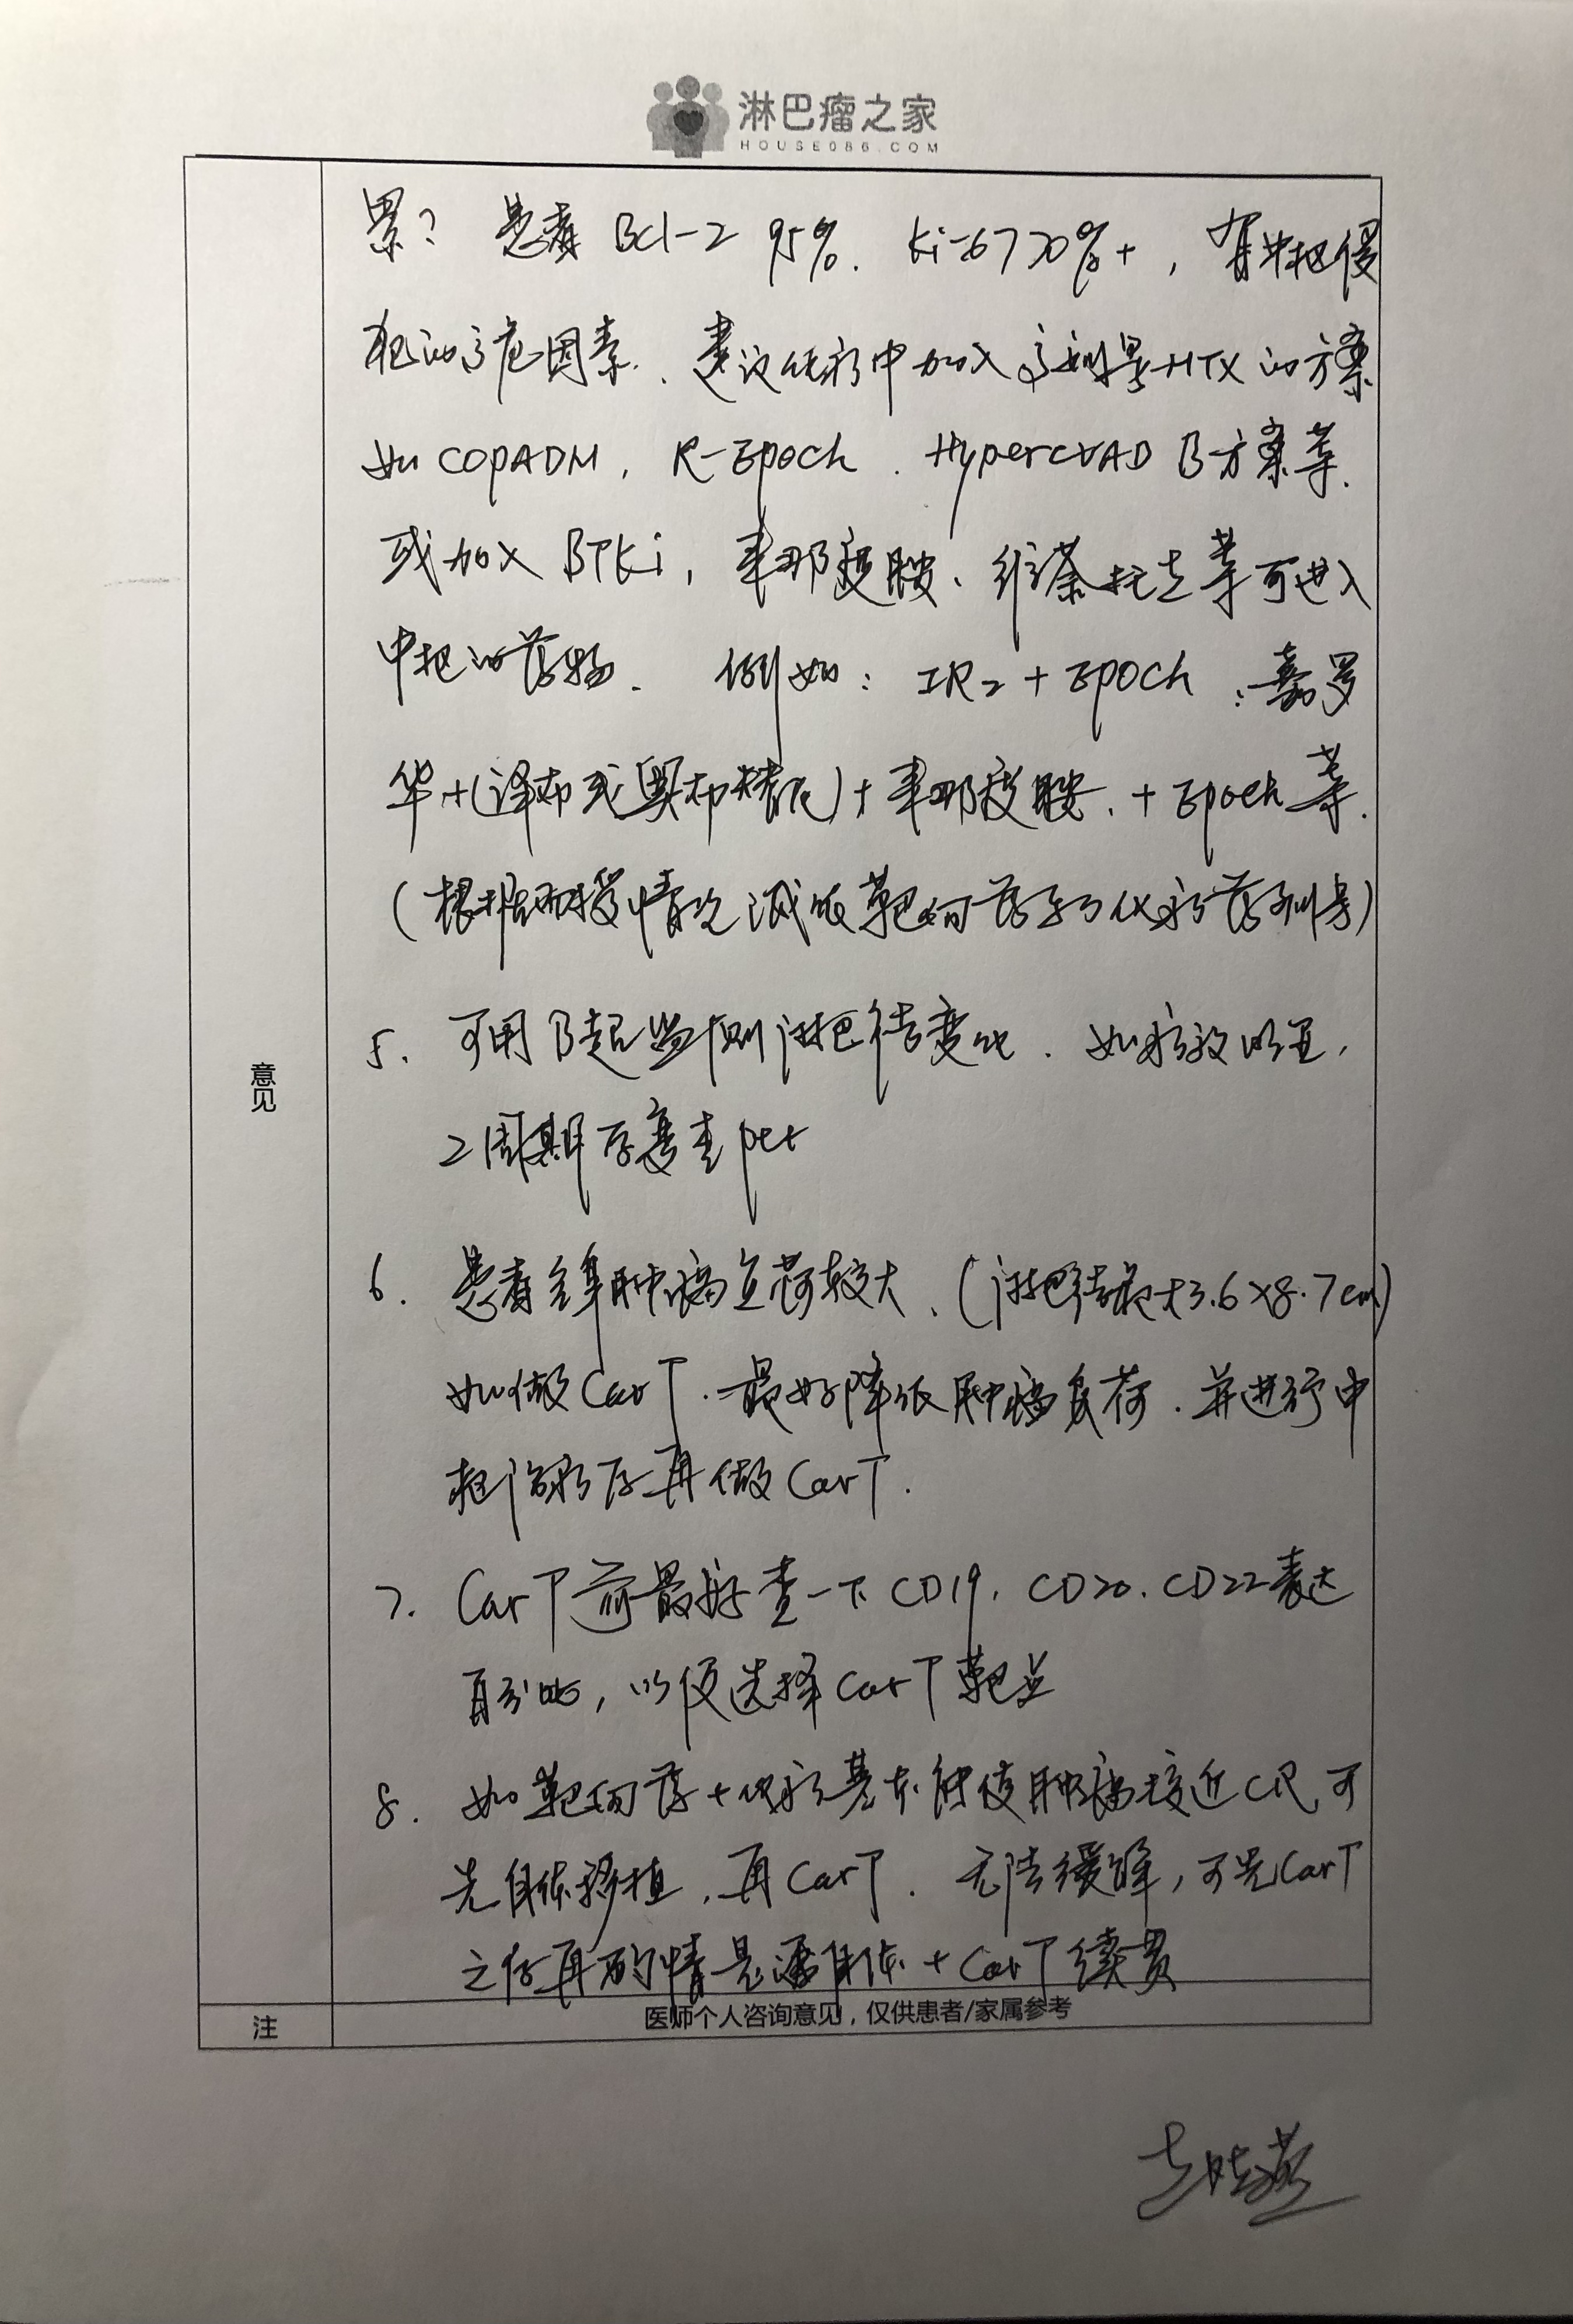 淋巴瘤之家
HOUSE086.COM
累? 患者 Bcl-2 95%. Ki-67 70%+, 有中枢侵
犯的高危因素. 建议化疗中加入高剂量MTX的方案
如COPADM, R-EPOCH. HyperCVAD B方案等.
或加入BTKi, 来那度胺、维奈托克等可进入
中枢的药物. 例如: IR2+EPOCH; 美罗
华+(泽布或奥布替尼)+来那度胺. +Epoch等.
(根据耐受情况调低靶向药与化疗药剂量)
5. 可用B超监测淋巴结变化. 如疗效明显,
2周期后复查pet
6. 患者全身肿瘤负荷较大、(淋巴结最大3.6×8.7cm)
如做CarT. 最好降低肿瘤负荷. 并进行中
枢治疗后再做CarT.
7. CarT前最好查一下CD19. CD20. CD22表达
百分比, 以便选择CarT靶点
8. 如靶向药+化疗基本能使肿瘤接近CR, 可
先自体移植, 再CarT. 无法缓解, 可先CarT
之后再酌情是否自体+CarT续贯
意见
注
医师个人咨询意见，仅供患者/家属参考